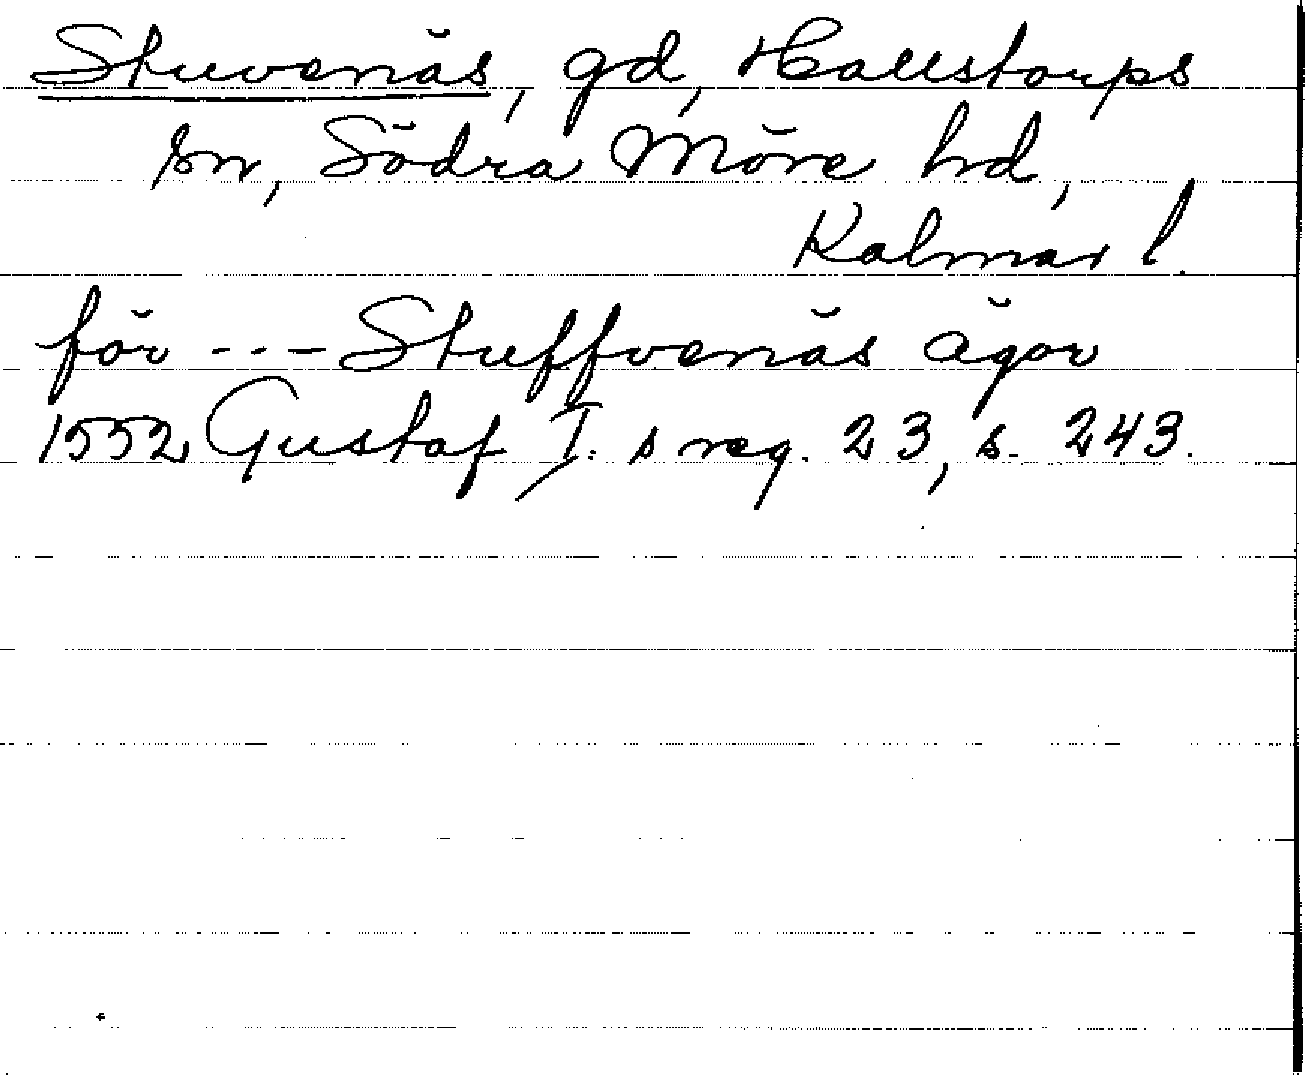 Stuvenäs, gd, Hallstorps
sn, Södra Möre hd,
Kalmar l.
för --- Stuffvenäs ägor
1552 Gustaf I:s reg. 23, s. 243.